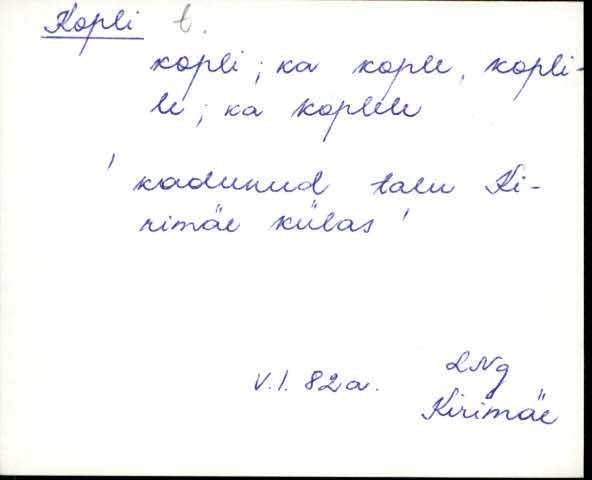 Kopli t.
kopli; ka kople, kopli-
le; ka koplele
' kadunud talu Ki-
rimäe külas '
V.I. 82a. LNg
Kirimäe